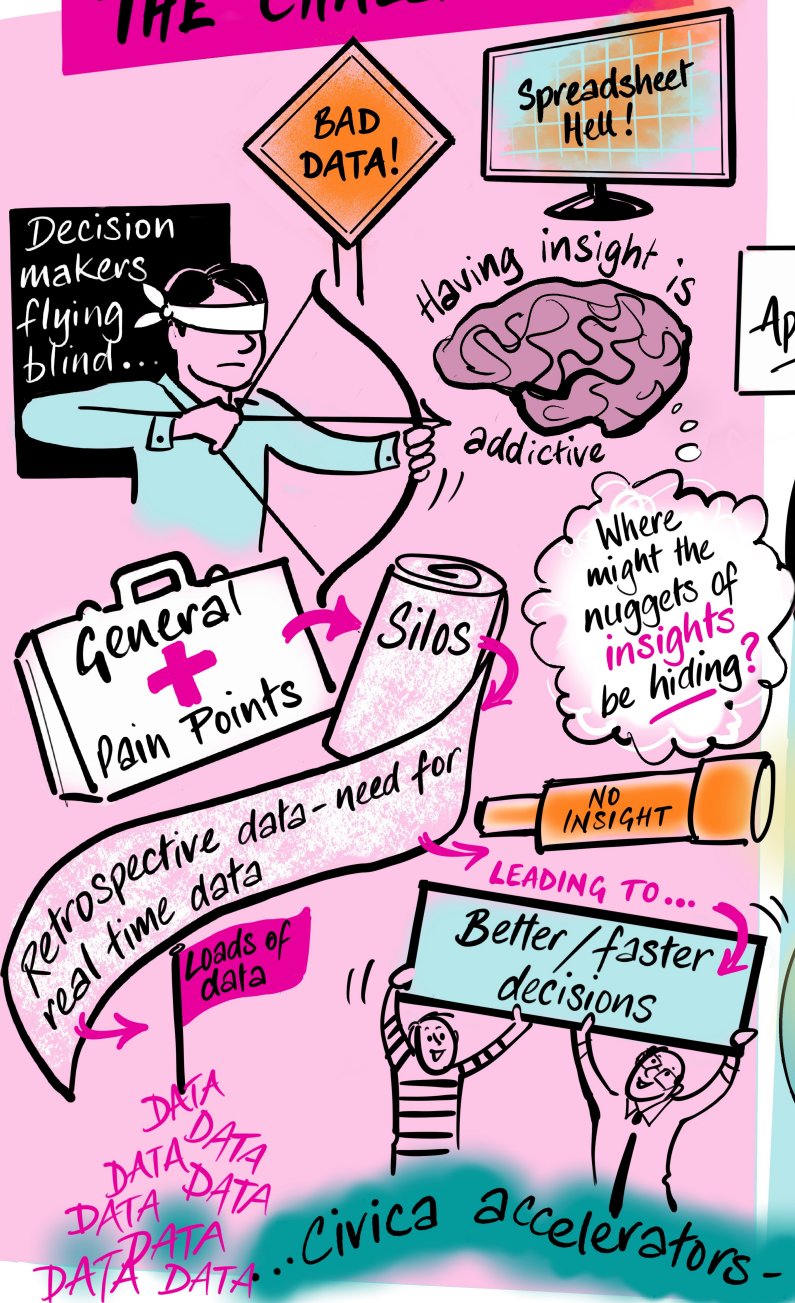 THE
BAD
DATA!
Spreadsheet
Hell!
Decision
makers
flying
blind...
Having insight is
addictive
Where
might the
nuggets of
insights
be hiding?
General
Pain Points
Silos
Retrospective data - need for
real time data
NO
INSIGHT
LEADING TO...
Better/faster
decisions
Loads of
data
DATA
DATA
DATA
DATA
DATA
DATA
DATA
DATA
...Civica accelerators -